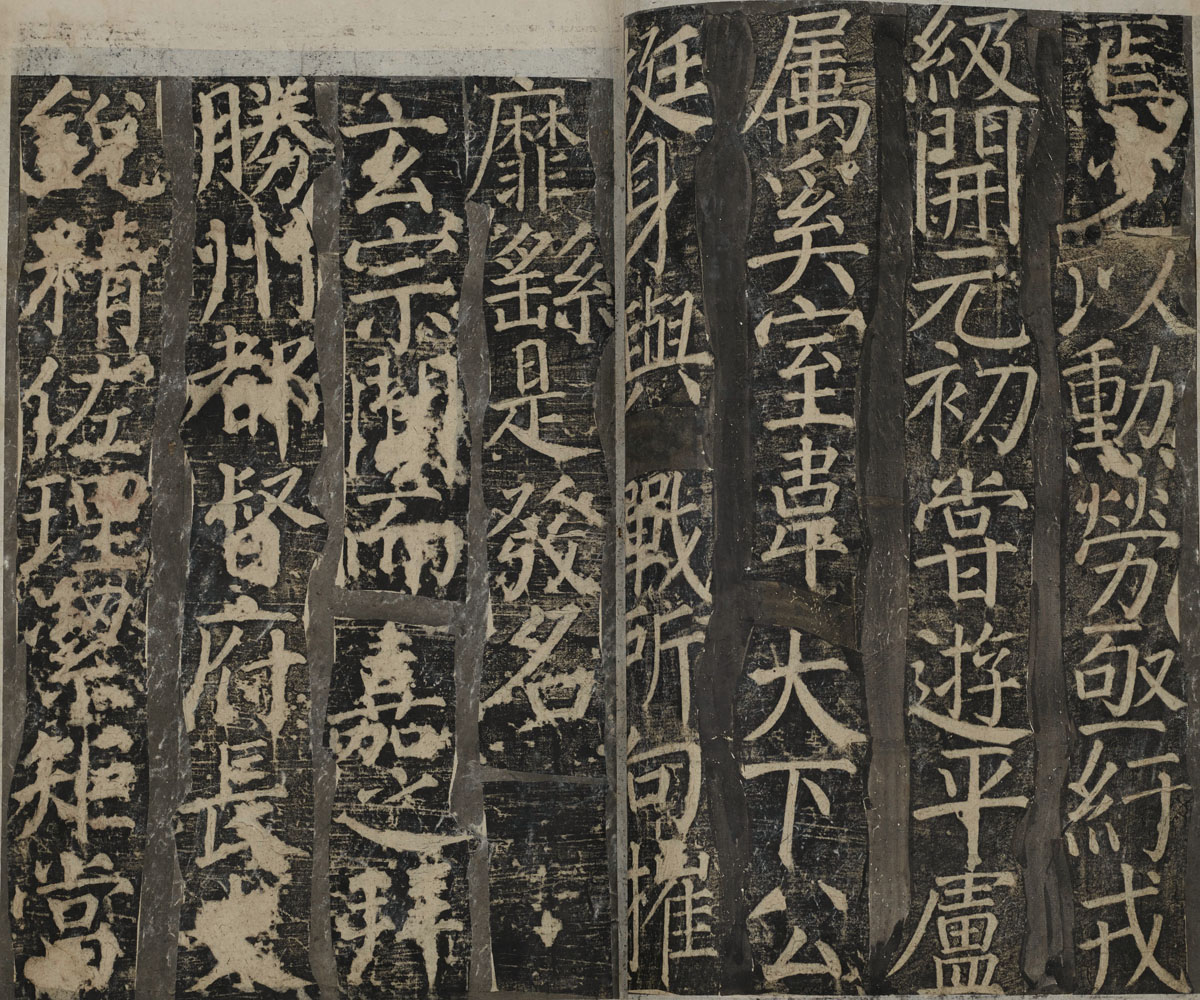 焉以勲勞亟紆戎
級開元初甞遊平盧
属奚室韋大下公
挺身與戰所向摧
靡繇是發名
玄宗聞而嘉之拜
勝州都督府長史
銳精佐理絜矩當